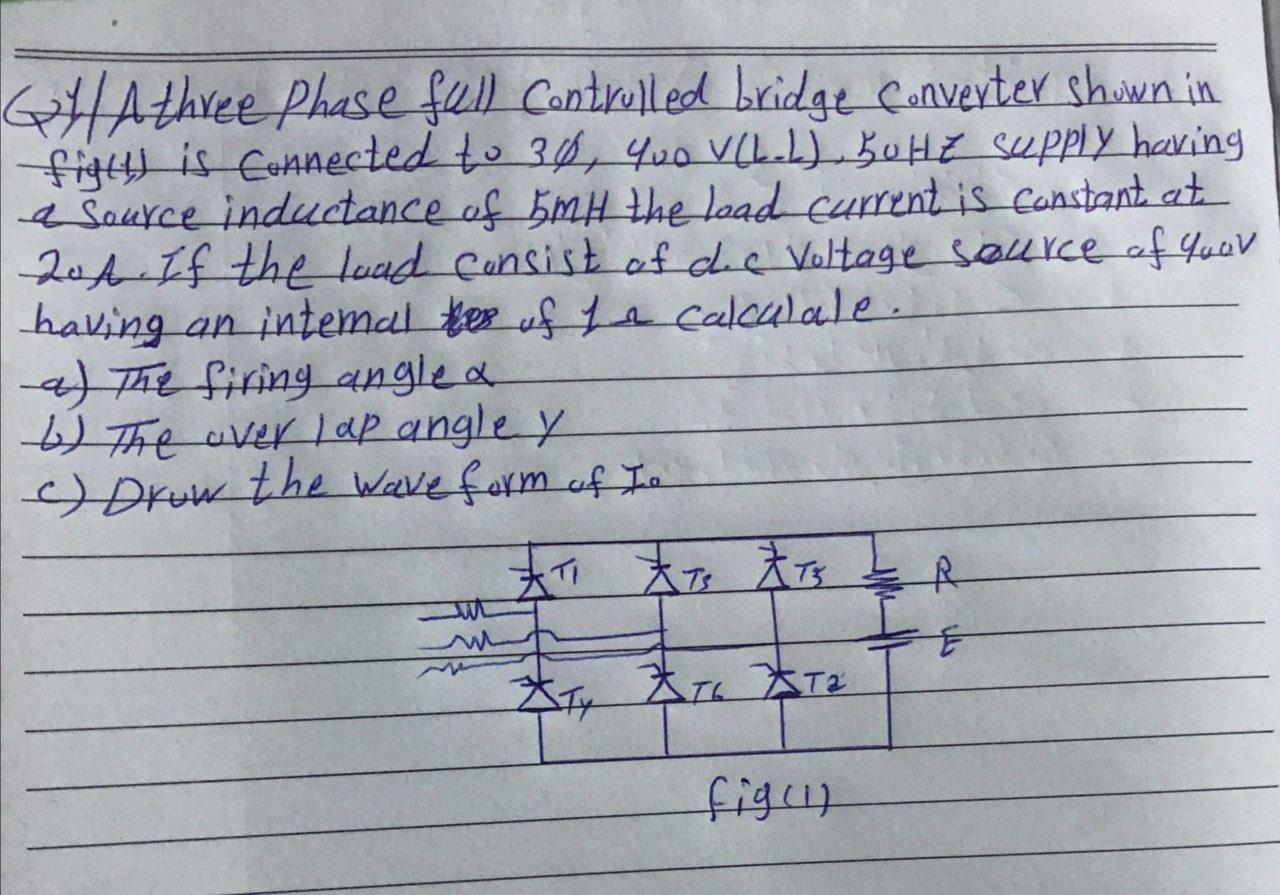 Q1/ A three Phase full Controlled bridge Converter shown in
fig(1) is Connected to 3Ø, 400 V(L.L), 50HZ supply having
a source inductance of 5mH the load current is constant at
20A. If the load consist of d.c Voltage source of 400V
having an internal of 1Ω calculale.
a) The firing angle α
b) The over lap angle γ
c) Draw the wave form of Io
T1 T3 T5 R
E
T4 T6 T2
fig(1)